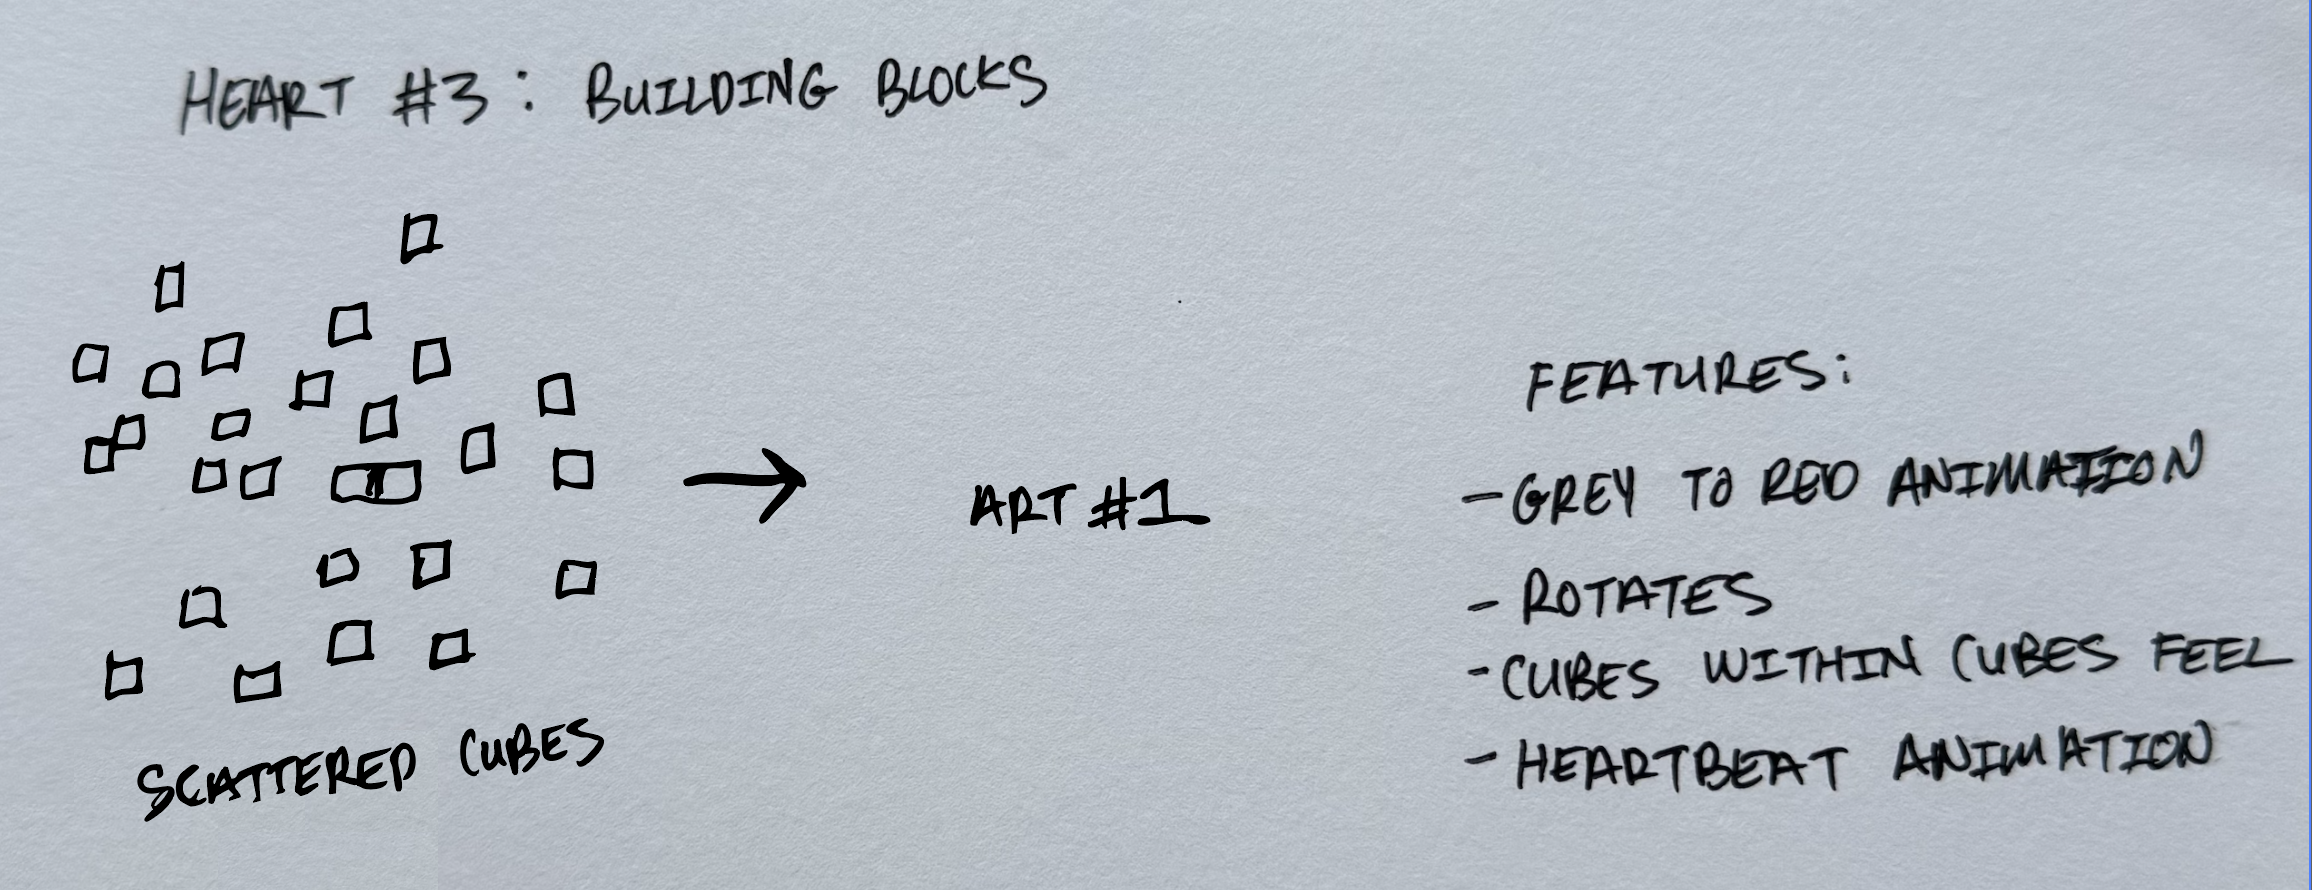 HEART #3: BUILDING BLOCKS
SCATTERED CUBES
ART #1
FEATURES:
- GREY TO RED ANIMATION
- ROTATES
- CUBES WITHIN CUBES FEEL
- HEARTBEAT ANIMATION